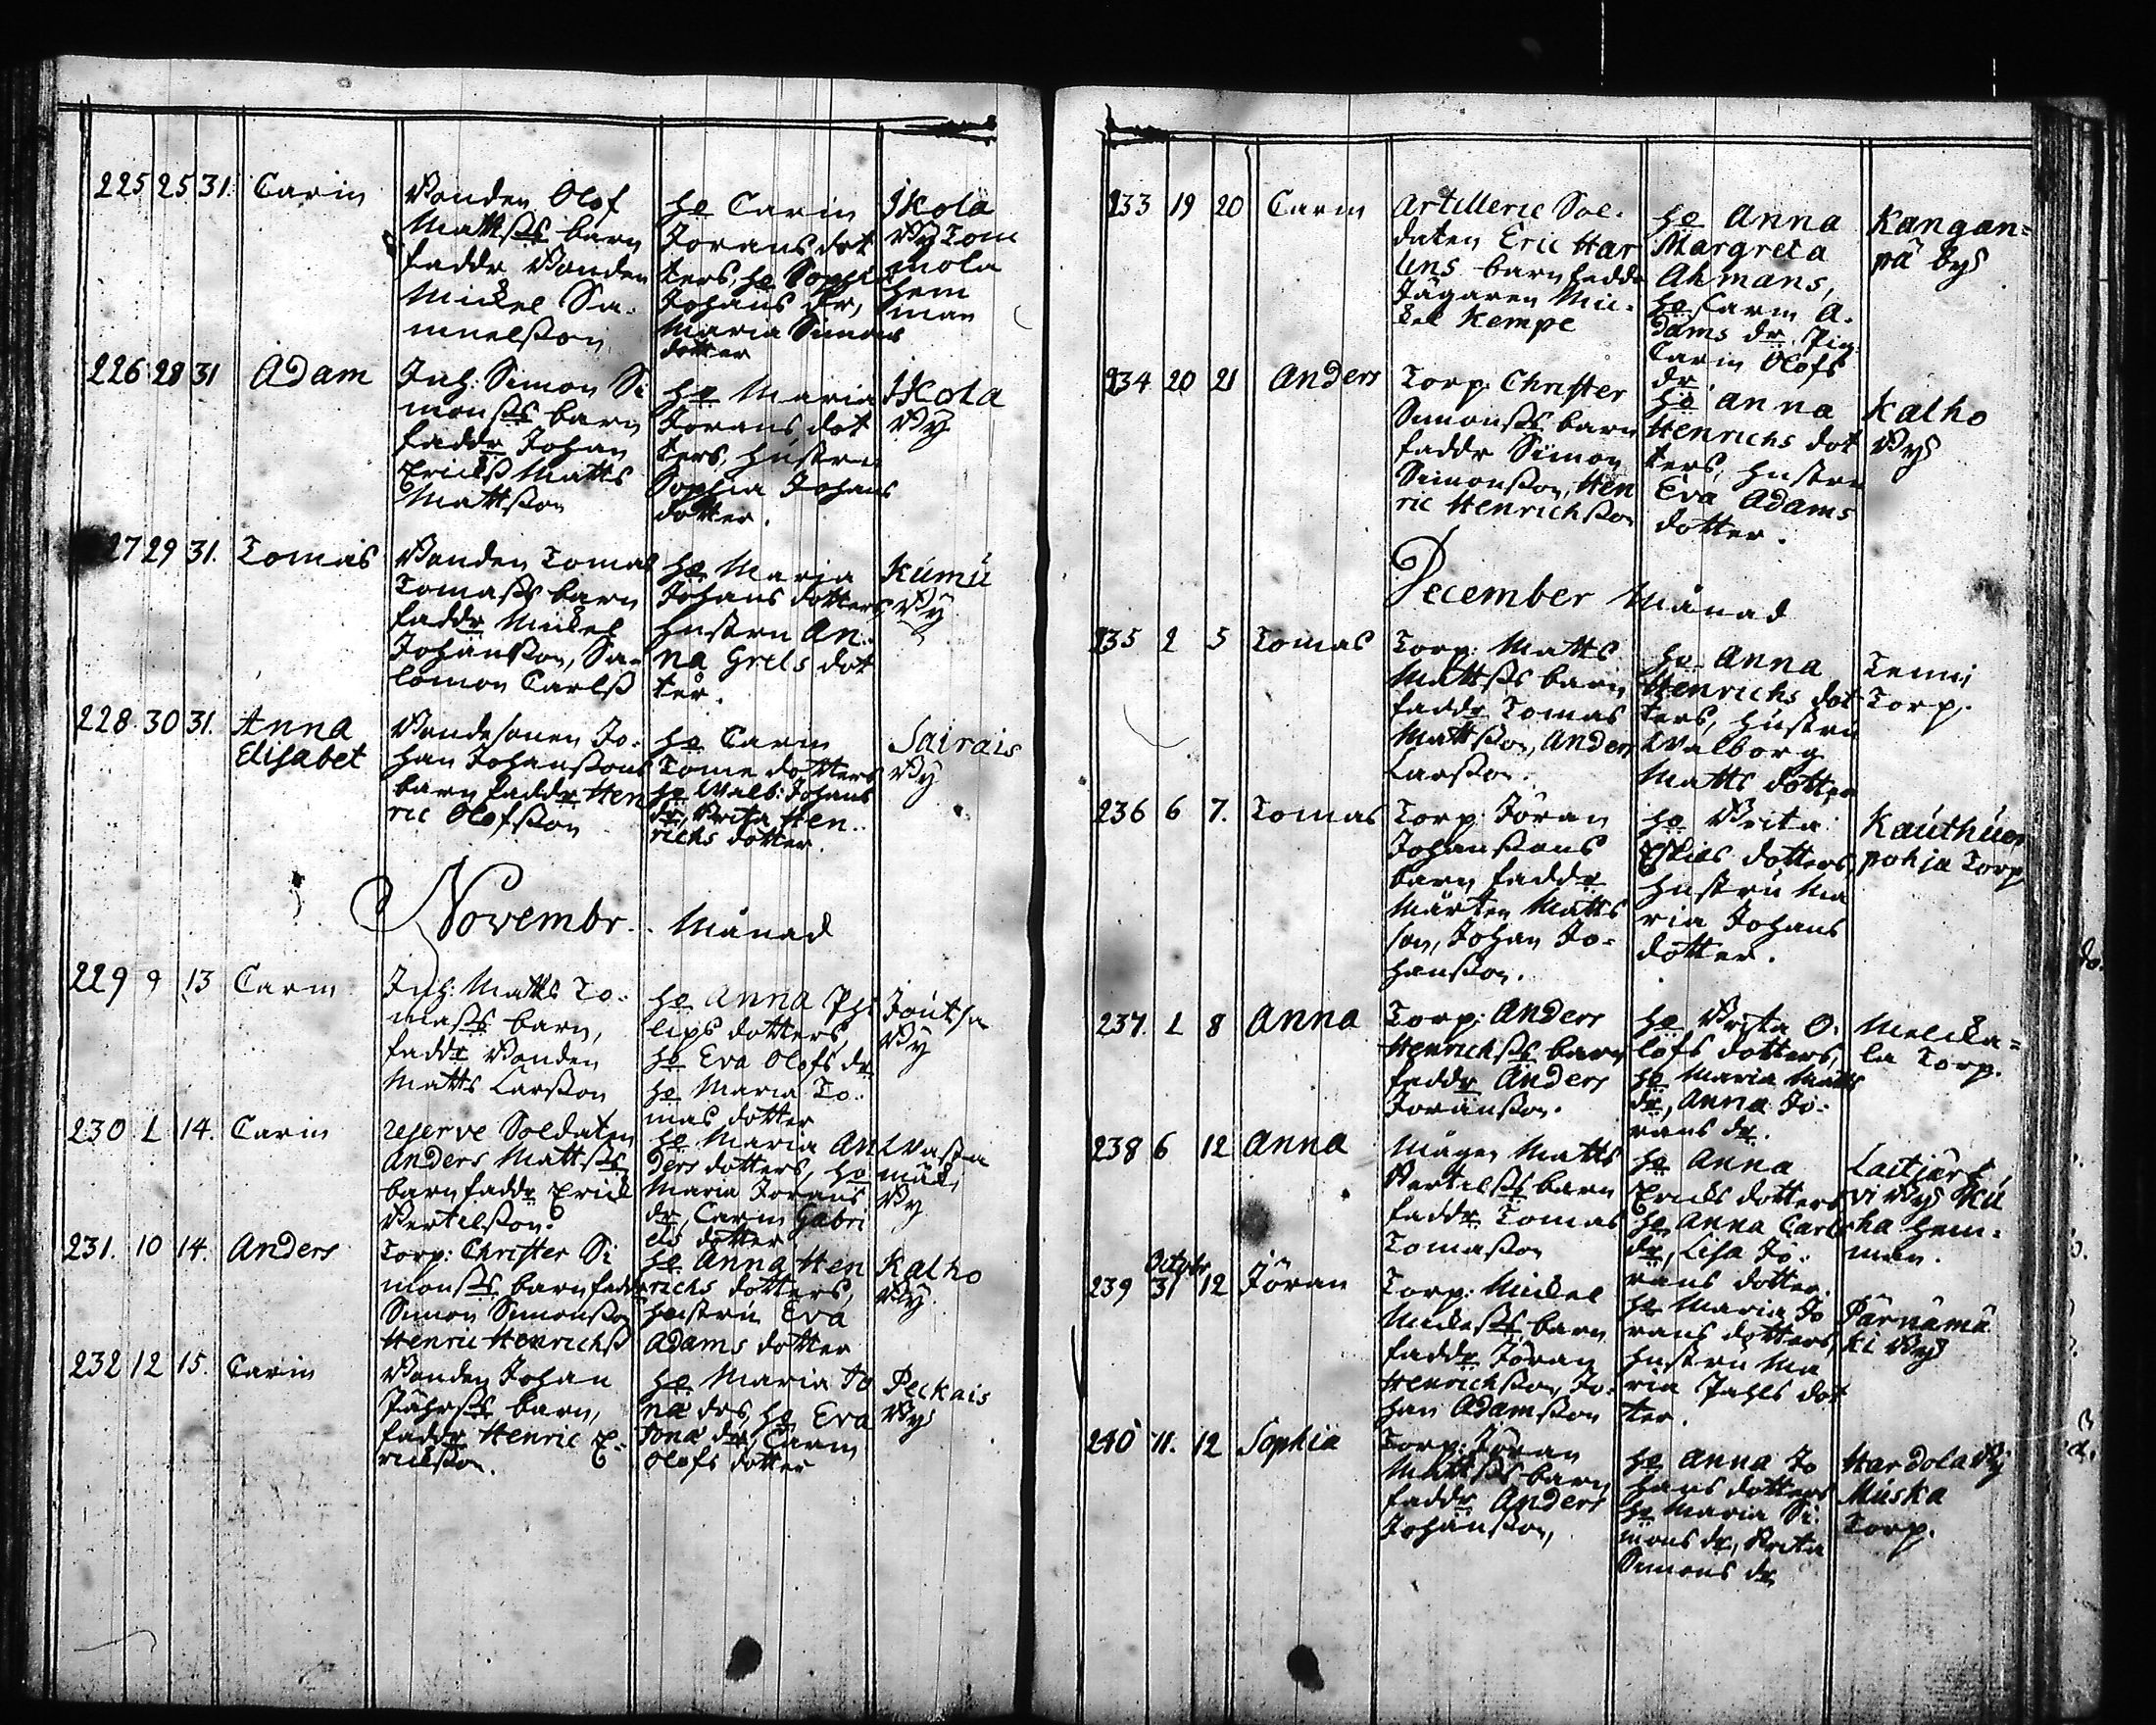 225 25 31. Carin
Bonden Olof
Mattsss barn
faddr Bonden
Mickel Sa-
muelsson
he Carin
Jörans dot
ters, he Sophi
Johans dr,
Maria Simons
dotter
Ikola
By Tom
mola
Hem
man
226 28 31 Adam
Inh: Simon Si
monss barn
faddr Johan
Ericks Matts
Mattsson
he Maria
Jörans dot
ters, hustru
Sophia Johans
dotter.
Ikola
By
27 29 31. Tomas
Bonden Tomas
Tomass barn
faddr Mickel
Johansson, Sa-
lomon Carls
he Maria
Johans dotters,
hustru An-
na Grels dot
ter.
Kumu
By
228. 30 31. Anna
Elisabet
Bondesonen Jo-
han Johanssons
barn faddr Hen
ric Olofsson
he Carin
Tome dotters
he Walb: Johans
dr, Brita Hen-
richs dotter.
Sairais
By
Novembr. Månad
229 9 13 Carin
Inh: Matts To-
mass barn,
faddr Bonden
Matts Larsson
he Anna Phi
lips dotters,
he Eva Olofs dr
he Maria To-
mas dotter
Joutsa
By
230 1 14. Carin
reserve Soldaten
Anders Mattss
barn faddr Erick
Bertelsson.
he Maria An
ders dotters, he
Maria Jörans
dr, Carin Gabri
els dotter
By
231. 10 14. Anders
Torp: Christer Si
monss barn faddr
Simon Simonsson
Henric Henrichs
he Anna Hen
richs dotters,
hustru Eva
Adams dotter
Kalho
By
232 12 15. Carin
Bonden Johan
Påhlss barn,
faddr Henric E-
ricksson.
he Maria Jo
na drs, he Eva
Jona dr, Carin
Olofs dotter
Peckais
By
233 19 20 Carin
Artillerie Sol-
daten Eric Har
lins barn faddr
Jägaren Mic-
kel Kempe
he Anna
Margreta
Ahmans,
he Carin A-
dams dr, Pig
Carin Olofs
dr.
Kangan-
pä bys
234 20 21 Anders
Torp: Christer
Simonss barn
faddr Simon
Simonsson, Hen
ric Henrichsson
he Anna
Henrichs dot
ters, hustru
Eva Adams
dotter.
Kalho
Bys
December Månad
235 2 5 Tomas
Torp: Matts
Mattss barn
faddr Tomas
Mattsson, Anders
Larsson.
he Anna
Henrichs dot
ters, hustru
Walborg
Matts dotter
Tenni
Torp.
236 6 7. Tomas
Torp Jöran
Johanssons
barn faddr
Mårten Matts
son, Johan Jo-
hansson.
he Brita
Eskils dotters,
hustru Ma
ria Johans
dotter.
pohja Torp
237. 1 8 Anna
Torp: Anders
Henrichss barn
faddr Anders
Joransson.
he Brita O-
lofs dotters,
he Maria Matts
dr, Anna Jo-
rans dr.
Melcka-
la Torp.
238 6 12 Anna
Mågen Matts
Bertelss barn
faddr Tomas
Tomasson
he Anna
Ericks dotters
he Anna Carls
dr, Lisa Jö-
rans dotter.
Laitjär
vi Bys Ku
ha Hem-
man.
239 Octobr
31 12 Jöran
Torp: Mickel
Mickelss barn
faddr Jöran
Henrichsson, Jo-
han Adamsson
he Maria Jo
rans dotters,
hustru Ma
ria Påhls dot
ter.
Pärnämä
ki Bys
240 11. 12 Sophia
Torp: Jöran
Mattss barn
faddr Anders
Johansson,
he Anna Jo
hans dotters
he Maria Si-
mons dr, Brita
Simons dr
Hardola By
Muska
Torp.